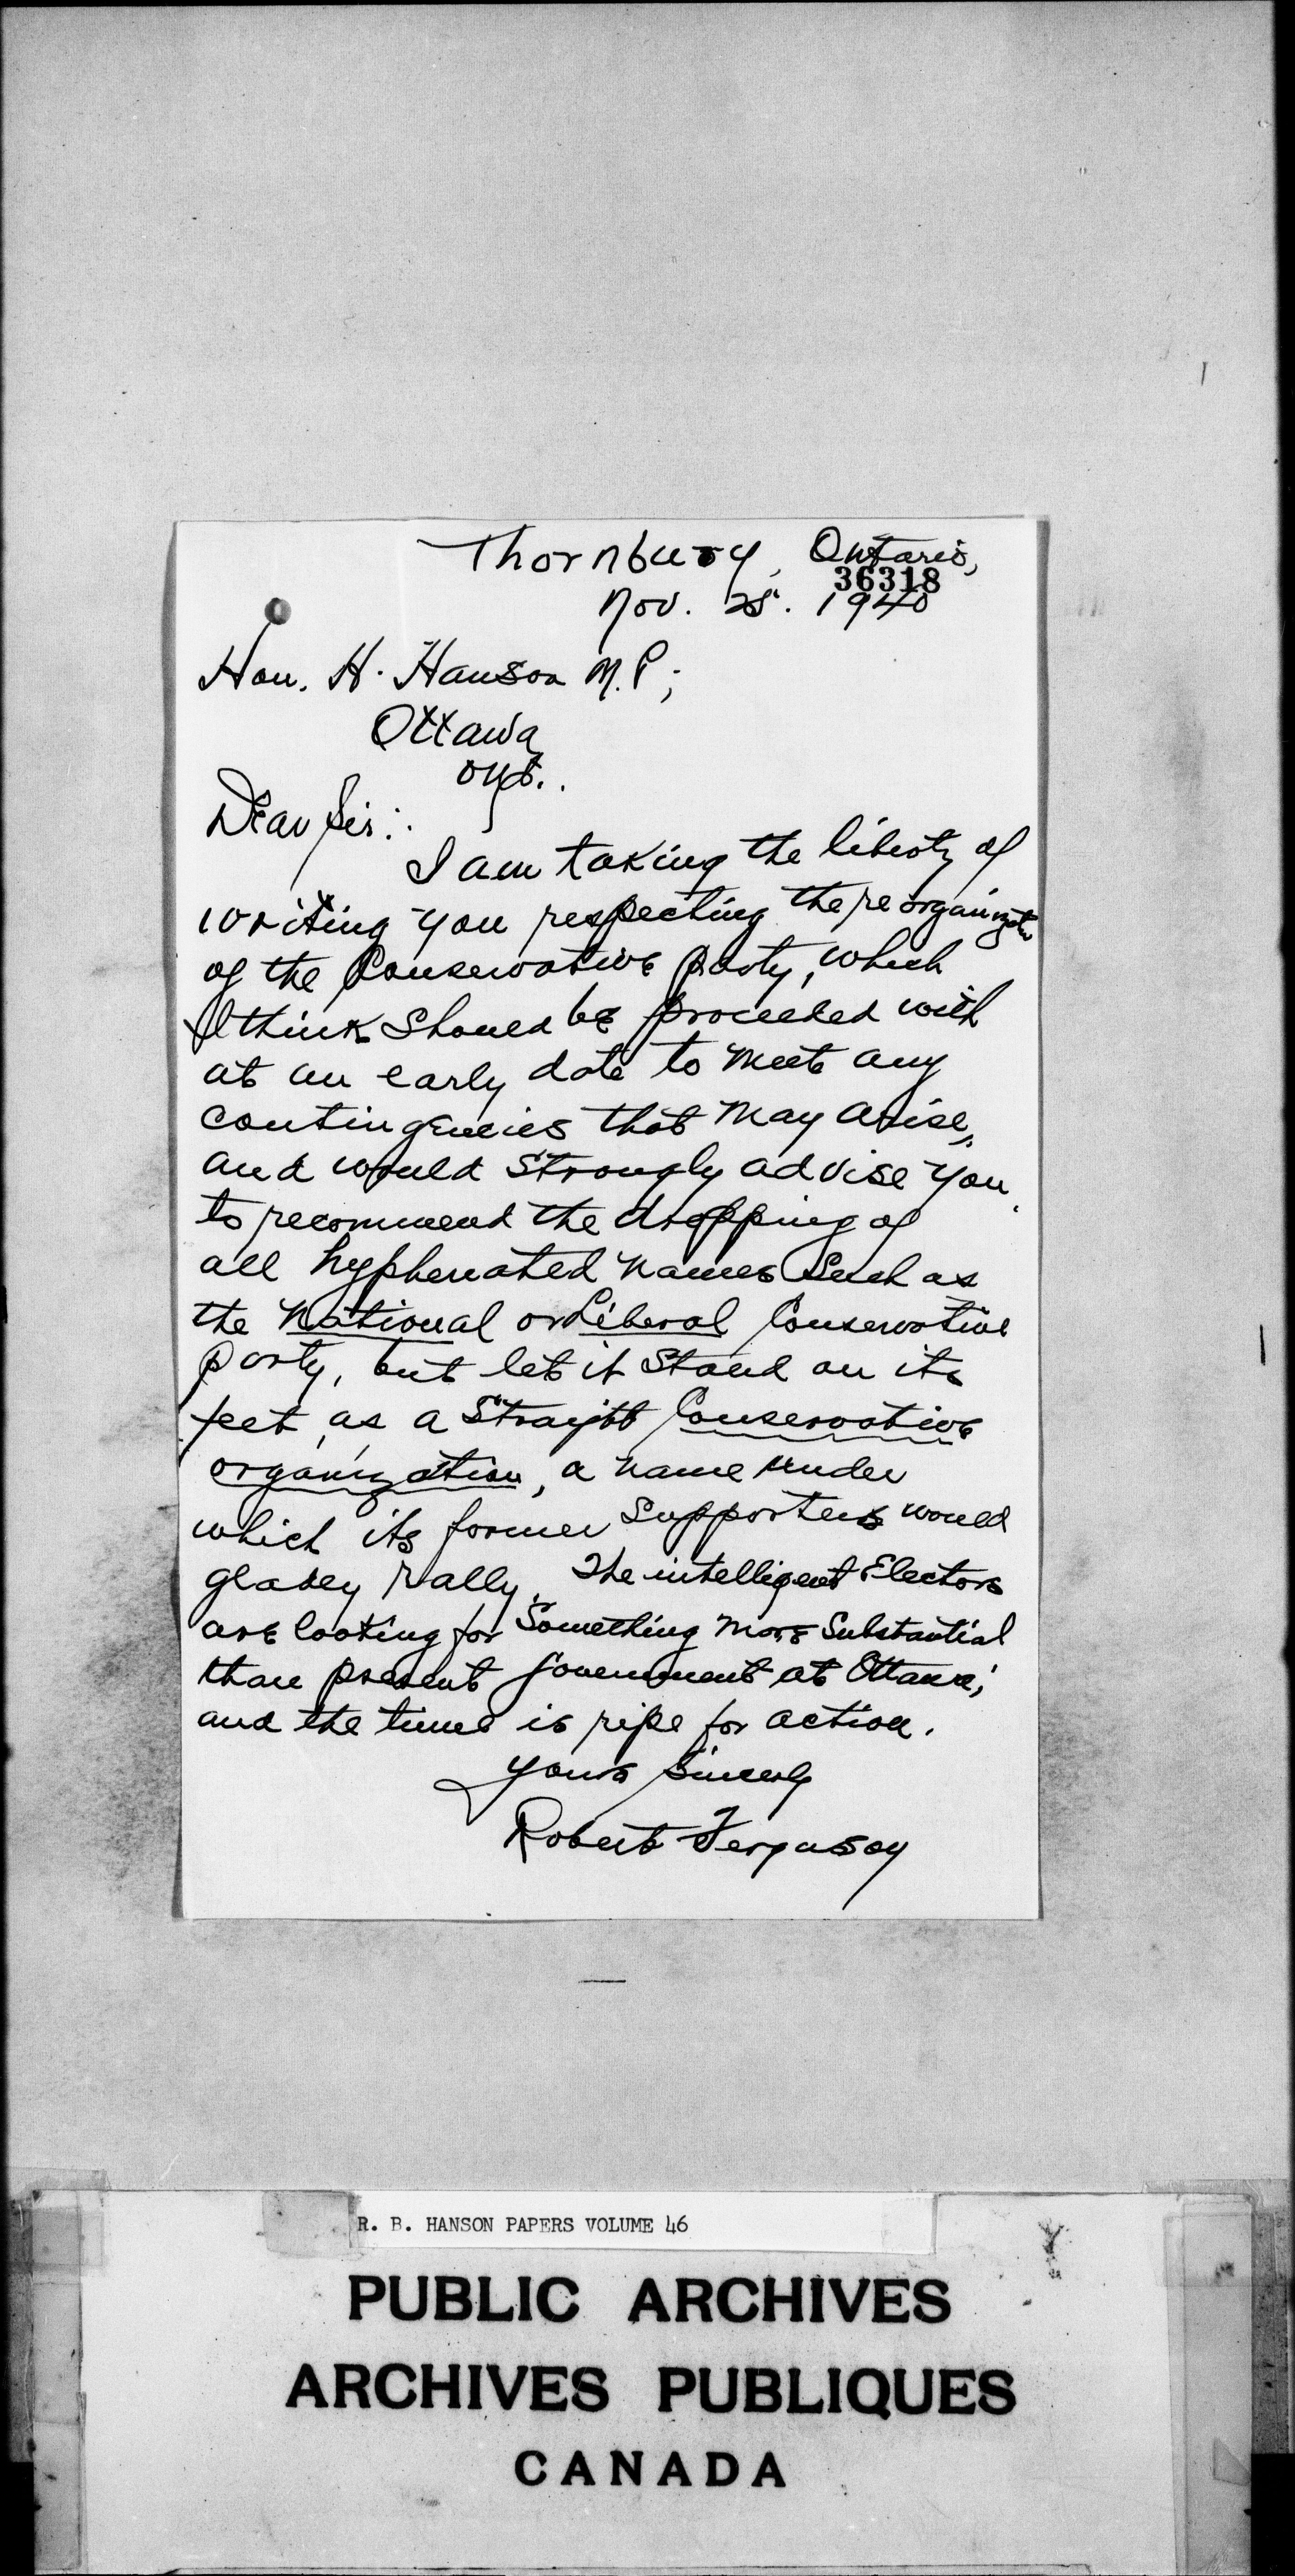 Thornbury, Ontario,
36318
Nov. 25. 1940
Hon. H. Hanson M.P;
Ottawa
Ont..
Dear Sir:
I am taking the liberty of
writing you respecting the reorganization
of the Conservative party, which
I think should be proceeded with
at an early date to meet any
contingencies that may arise,
and would strongly advise you
to recommend the dropping of
all hyphenated names such as
the National or Liberal Conservative
party, but let it stand on its
feet, as a straight Conservative
organization, a name under
which its former supporters would
gladly rally. The intelligent Electors
are looking for something more substantial
than present government at Ottawa;
and the time is ripe for action.
Yours Sincerely
Robert Ferguson
R. B. HANSON PAPERS VOLUME 46
PUBLIC ARCHIVES
ARCHIVES PUBLIQUES
CANADA